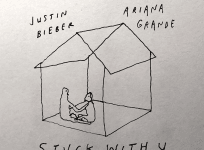 JUSTIN BIEBER
ARIANA GRANDE
STUCK WITH U